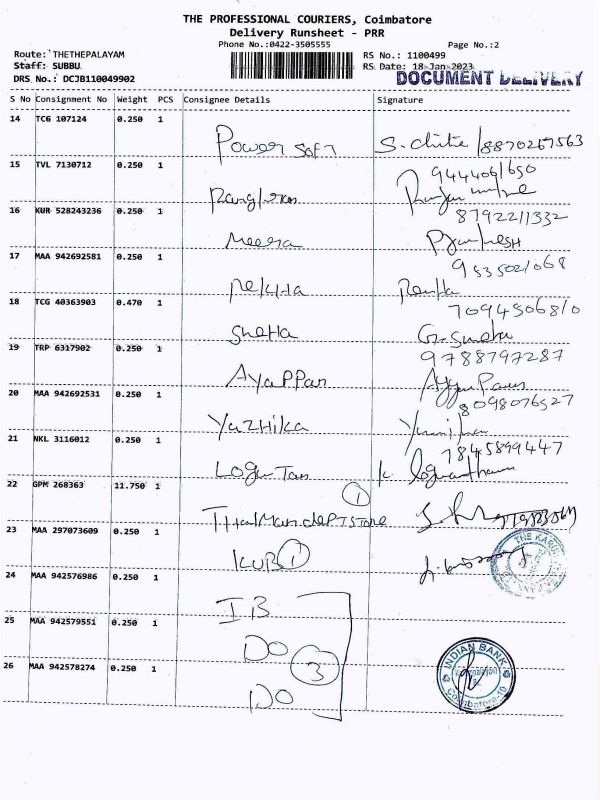 THE PROFESSIONAL COURIERS, Coimbatore
Delivery Runsheet - PRR
Phone No.:0422-3505555 Page No.:2
Route: THETHEPALAYAM RS No.: 1100499
Staff: SUBBU RS Date: 18-Jan-2023
DRS No.: DCJB110049902 DOCUMENT DELIVERY
S No Consignment No Weight PCS Consignee Details Signature
14 TCG 107124 0.250 1
Power Soft 8870267563
15 TVL 7130712 0.250 1
16 KUR 528243236 0.250 1
8792211332
Meera
17 MAA 942692581 0.250 1
Rekha
18 TCG 40363903 0.470 1
7094506810
Sneha
19 TRP 6317902 0.250 1
9788797287
Ayappan
20 MAA 942692531 0.250 1
8098076527
Yazhika
21 NKL 3116012 0.250 1
7845899447
22 GPM 268363 11.750 1
1
23 MAA 297073609 0.250 1
KUB 1
24 MAA 942576986 0.250 1
IB
25 MAA 942579551 0.250 1
DO
3
26 MAA 942578274 0.250 1
DO
INDIAN BANK
Coimbatore-10